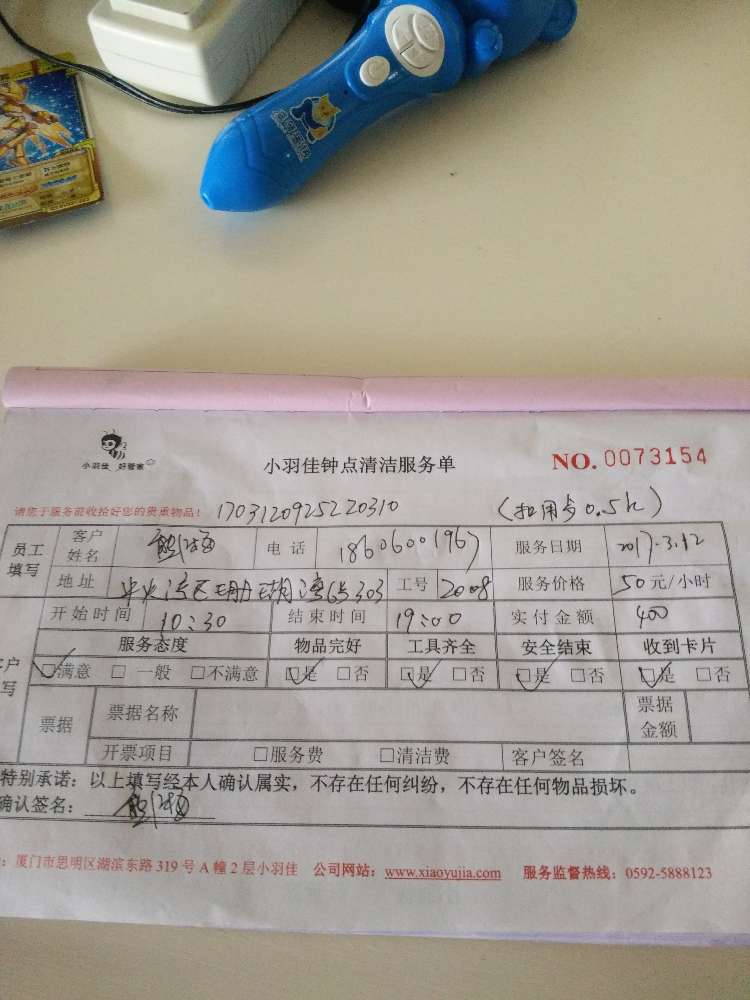 小羽佳 好管家
小羽佳钟点清洁服务单
NO. 0073154
请您于服务前收拾好您的贵重物品！ 1703120925220310 (扣用多0.5h)
员工填写 客户姓名 电话 18606001967 服务日期 2017.3.12
地址 中央湾区珊瑚湾65303 工号 2008 服务价格 50元/小时
开始时间 10:30 结束时间 19:00 实付金额 400
服务态度 物品完好 工具齐全 安全结束 收到卡片
☑满意 □一般 □不满意 ☑是 □否 ☑是 □否 ☑是 □否 ☑是 □否
票据 票据名称 票据金额
开票项目 □服务费 □清洁费 客户签名
特别承诺：以上填写经本人确认属实，不存在任何纠纷，不存在任何物品损坏。
确认签名：
：厦门市思明区湖滨东路319号A幢2层小羽佳 公司网站：www.xiaoyujia.com 服务监督热线：0592-5888123